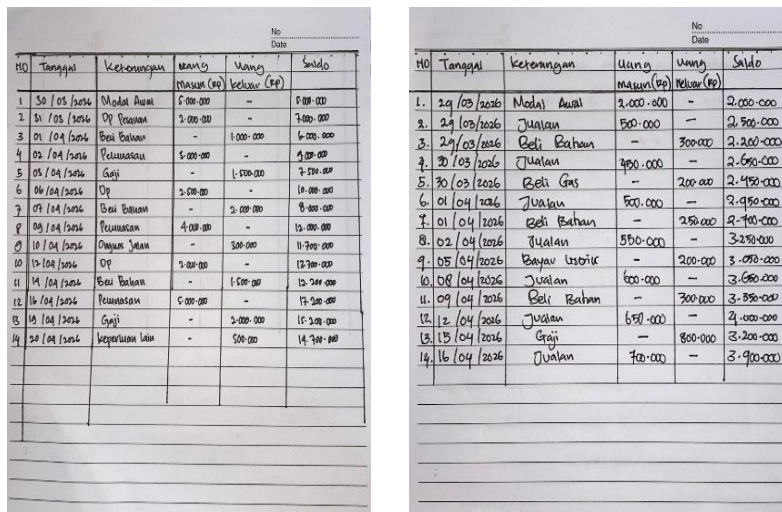 No
Date
NO Tanggal Keterangan Uang Masuk (Rp) Uang Keluar (Rp) Saldo
1 30 / 03 / 2026 Modal Awal 5.000.000 - 5.000.000
2 31 / 03 / 2026 Dp Pesanan 2.000.000 - 7.000.000
3 01 / 04 / 2026 Beli Bahan - 1.000.000 6.000.000
4 02 / 04 / 2026 Pelunasan 3.000.000 - 9.000.000
5 03 / 04 / 2026 Gaji - 1.500.000 7.500.000
6 06 / 04 / 2026 Dp 2.500.000 - 10.000.000
7 07 / 04 / 2026 Beli Bahan - 2.000.000 8.000.000
8 09 / 04 / 2026 Pelunasan 4.000.000 - 12.000.000
9 10 / 04 / 2026 Ongkos Jalan - 300.000 11.700.000
10 12 / 04 / 2026 DP 2.000.000 - 13.700.000
11 14 / 04 / 2026 Beli Bahan - 1.500.000 12.200.000
12 16 / 04 / 2026 Pelunasan 5.000.000 - 17.200.000
13 19 / 04 / 2026 Gaji - 2.000.000 15.200.000
14 20 / 04 / 2026 keperluan lain - 500.000 14.700.000
No
Date
NO Tanggal keterangan Uang Masuk (Rp) Uang Keluar (Rp) Saldo
1. 29 / 03 / 2026 Modal Awal 2.000.000 - 2.000.000
2. 29 / 03 / 2026 Jualan 500.000 - 2.500.000
3. 29 / 03 / 2026 Beli Bahan - 300.000 2.200.000
4. 30 / 03 / 2026 Jualan 450.000 - 2.650.000
5. 30 / 03 / 2026 Beli Gas - 200.000 2.450.000
6. 01 / 04 / 2026 Jualan 500.000 - 2.950.000
7. 01 / 04 / 2026 Beli Bahan - 250.000 2.700.000
8. 02 / 04 / 2026 Jualan 550.000 - 3.250.000
9. 05 / 04 / 2026 Bayar Listrik - 200.000 3.050.000
10. 08 / 04 / 2026 Jualan 600.000 - 3.650.000
11. 09 / 04 / 2026 Beli Bahan - 300.000 3.350.000
12. 12 / 04 / 2026 Jualan 650.000 - 4.000.000
13. 15 / 04 / 2026 Gaji - 800.000 3.200.000
14. 16 / 04 / 2026 Jualan 700.000 - 3.900.000